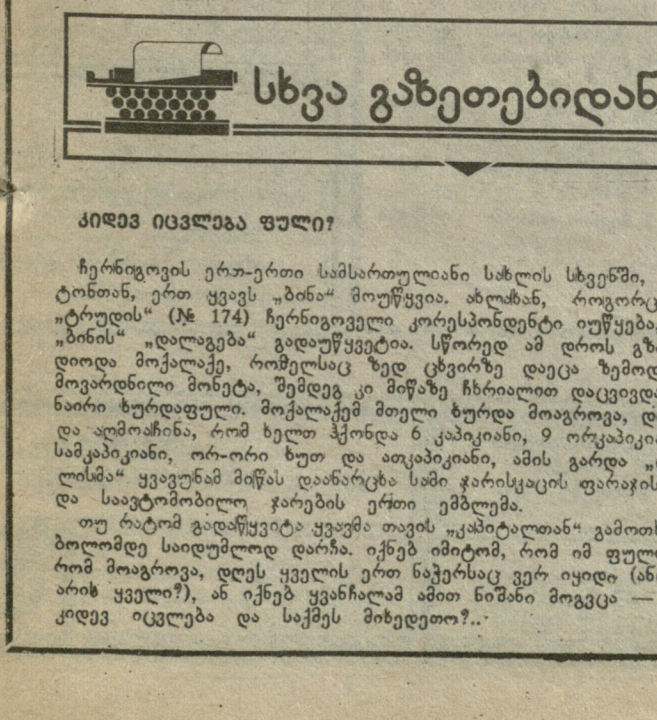 სხვა გაზეთებიდან
კიდევ იცვლება ფული?
ჩერნიგოვის ერთ-ერთი სამსართულიანი სახლის სხვენში,
ტონთან, ერთ ყვავს „ბინა“ მოუწყვია. ახლახან, როგორც
„ტრუდის“ (№ 174) ჩერნიგოველი კორესპონდენტი იუწყება,
„ბინის“ „დალაგება“ გადაუწყვეტია. სწორედ ამ დროს გზა
დიოდა მოქალაქე, რომელსაც ზედ ცხვირზე დაეცა ზემოდ
მოვარდნილი მონეტა, შემდეგ კი მიწაზე ჩხრიალით დაცვივდა
ნაირი ხურდაფული. მოქალაქემ მთელი ხურდა მოაგროვა, დ
და აღმოაჩინა, რომ ხელთ ჰქონდა 6 კაპიკიანი, 9 ორკაპიკია
სამკაპიკიანი, ორ-ორი ხუთ და ათკაპიკიანი, ამის გარდა „
ლისმა“ ყვავუნამ მიწას დაანარცხა სამი ჯარისკაცის ფარაჯის
და საავტომობილო ჯარების ერთი ემბლემა.
თუ რატომ გადაწყვიტა ყვავმა თავის „კაპიტალთან“ გამოთხ
ბოლომდე საიდუმლოდ დარჩა. იქნებ იმიტომ, რომ იმ ფული
რომ მოაგროვა, დღეს ყველის ერთ ნაჭერსაც ვერ იყიდი (ან
არის ყველი?), ან იქნებ ყვანჩალამ ამით ნიშანი მოგვცა —
კიდევ იცვლება და საქმეს მიხედეთო?..